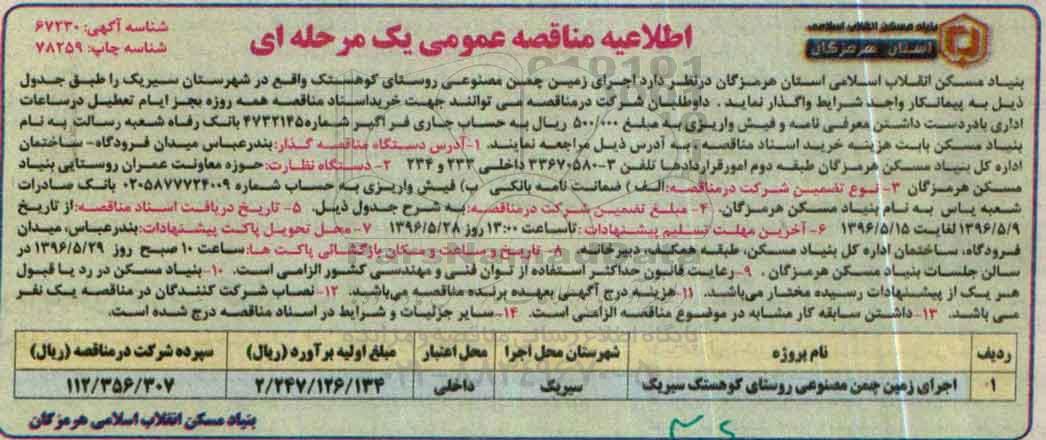 بنیاد مسکن انقلاب اسلامی
استان هرمزگان
اطلاعیه مناقصه عمومی یک مرحله ای
شناسه آگهی: ۶۷۲۳۰
شناسه چاپ: ۷۸۲۵۹
بنیاد مسکن انقلاب اسلامی استان هرمزگان درنظر دارد اجرای زمین چمن مصنوعی روستای کوهستک واقع در شهرستان سیریک را طبق جدول
ذیل به پیمانکار واجد شرایط واگذار نماید . داوطلبان شرکت درمناقصه می توانند جهت خریداسناد مناقصه همه روزه بجز ایام تعطیل درساعات
اداری بادردست داشتن معرفی نامه و فیش واریزی به مبلغ ۵۰۰/۰۰۰ ریال به حساب جاری فراگیر شماره۴۷۳۲۱۴۵ بانک رفاه شعبه رسالت به نام
بنیاد مسکن بابت هزینه خرید اسناد مناقصه ، به آدرس ذیل مراجعه نمایند. ۱-آدرس دستگاه مناقصه گذار: بندرعباس میدان فرودگاه- ساختمان
اداره کل بنیاد مسکن هرمزگان طبقه دوم امورقراردادها تلفن ۳-۳۳۶۷۰۵۸۰ داخلی ۲۳۳ و ۲۳۴ ۲- دستگاه نظارت: حوزه معاونت عمران روستایی بنیاد
مسکن هرمزگان ۳- نوع تضمین شرکت درمناقصه: الف) ضمانت نامه بانکی ب) فیش واریزی به حساب شماره ۰۲۰۵۸۷۷۷۲۴۰۰۹ بانک صادرات
شعبه یاس به نام بنیاد مسکن هرمزگان. ۴- مبلغ تضمین شرکت درمناقصه: به شرح جدول ذیل. ۵- تاریخ دریافت اسناد مناقصه: از تاریخ
۱۳۹۶/۵/۹ لغایت ۱۳۹۶/۵/۱۵ ۶-آخرین مهلت تسلیم پیشنهادات : تاساعت ۱۳:۰۰ روز ۱۳۹۶/۵/۲۸ ۷- محل تحویل پاکت پیشنهادات: بندرعباس، میدان
فرودگاه، ساختمان اداره کل بنیاد مسکن، طبقه همکف، دبیرخانه. ۸- تاریخ و ساعت و مکان بازگشائی پاکت ها: ساعت ۱۰ صبح روز ۱۳۹۶/۵/۲۹ در
سالن جلسات بنیاد مسکن هرمزگان . ۹-رعایت قانون حداکثر استفاده از توان فنی و مهندسی کشور الزامی است. ۱۰-بنیاد مسکن در رد یا قبول
هر یک از پیشنهادات رسیده مختار می‌باشد. ۱۱-هزینه درج آگهی بعهده برنده مناقصه می‌باشد. ۱۲-نصاب شرکت کنندگان در مناقصه یک نفر
می باشد. ۱۳-داشتن سابقه کار مشابه در موضوع مناقصه الزامی است. ۱۴-سایر جزئیات و شرایط در اسناد مناقصه درج شده است.
ردیف نام پروژه شهرستان محل اجرا محل اعتبار مبلغ اولیه برآورد (ریال) سپرده شرکت درمناقصه (ریال)
۰۱ اجرای زمین چمن مصنوعی روستای کوهستک سیریک سیریک داخلی ۲/۲۴۷/۱۲۶/۱۳۴ ۱۱۲/۳۵۶/۳۰۷
بنیاد مسکن انقلاب اسلامی هرمزگان